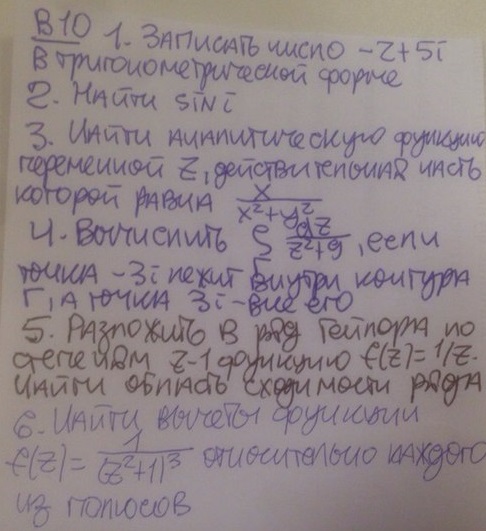 В10 1. Записать число -2+5i
в тригонометрической форме
2. Найти sin i
3. Найти аналитическую функцию
переменной z, действительная часть
которой равна x/(x²+y²)
4. Вычислить ∫_Γ dz/(z²+9), если
точка -3i лежит внутри контура
Г, а точка 3i - вне его
5. Разложить в ряд Тейлора по
степеням z-1 функцию f(z)=1/z.
Найти область сходимости ряда
6. Найти вычеты функции
f(z)= 1/(z²+1)³ относительно каждого
из полюсов